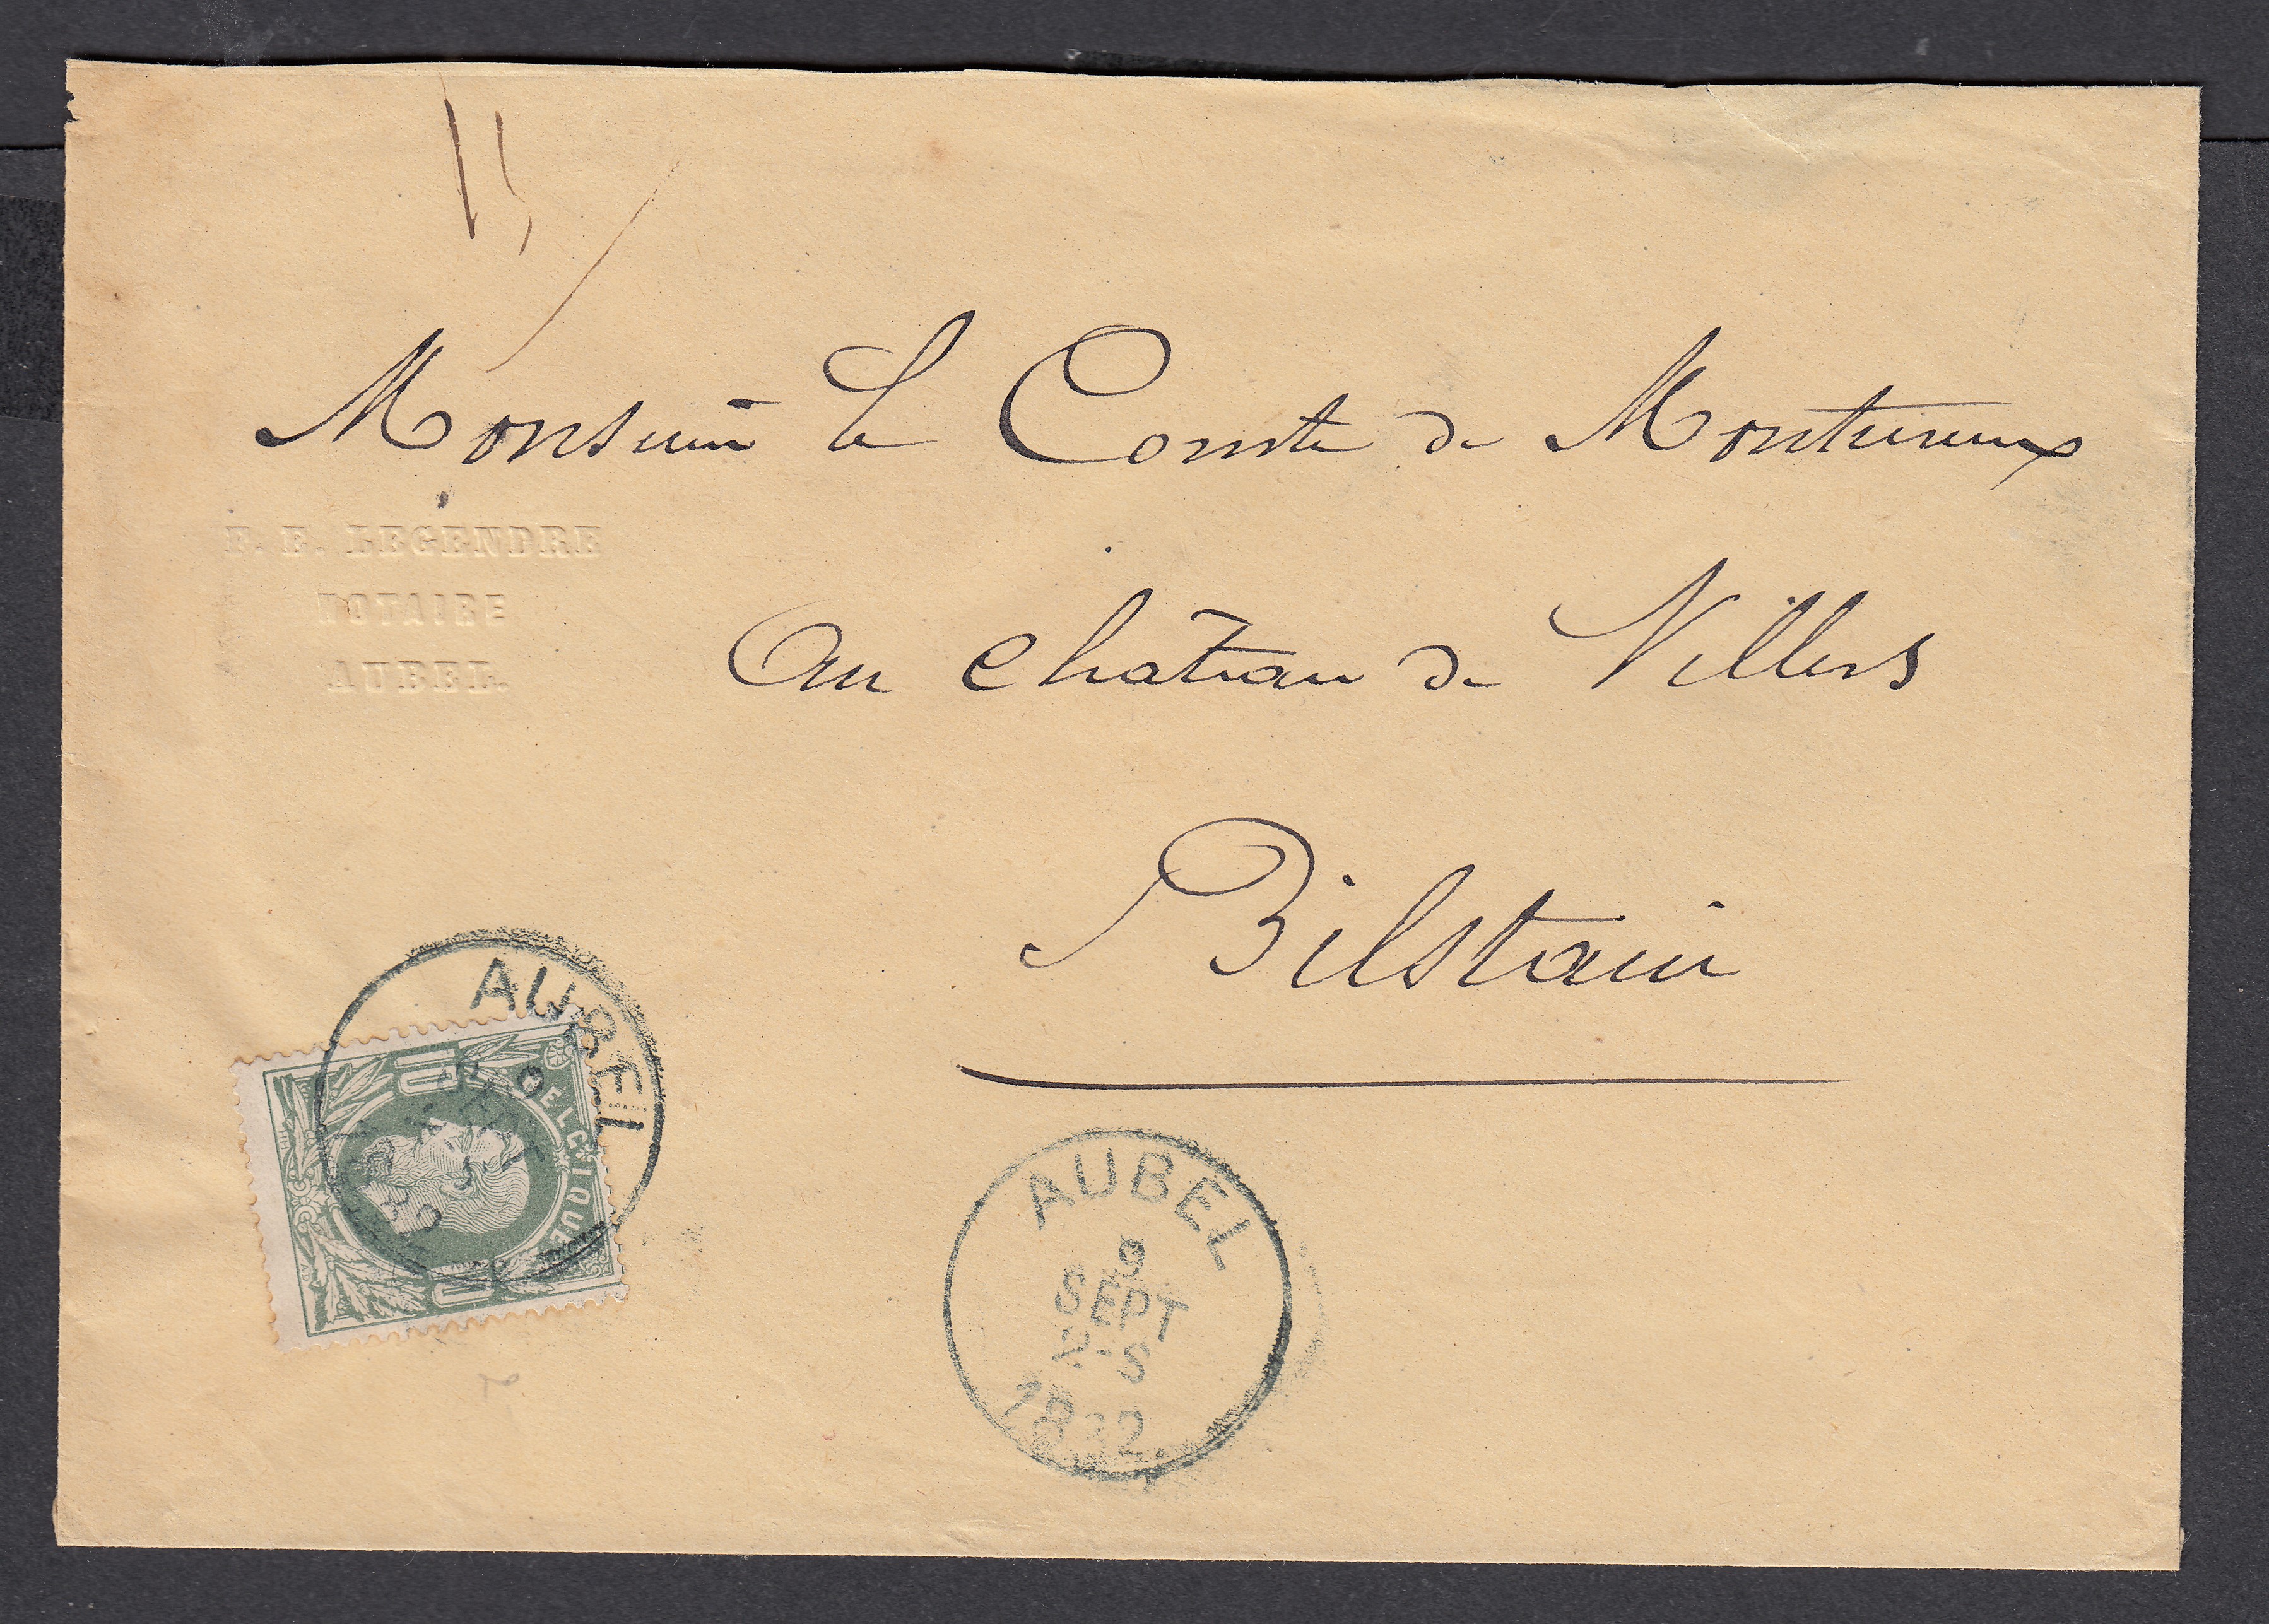 Monsieur le Comte de Montureux
F. E. LEGENDRE
NOTAIRE
AUBEL.
Au Château de Villers
Bilstain
AUBEL
9
SEPT
10
BELGIQUE
10
AUBEL
9
SEPT
2-S
1882